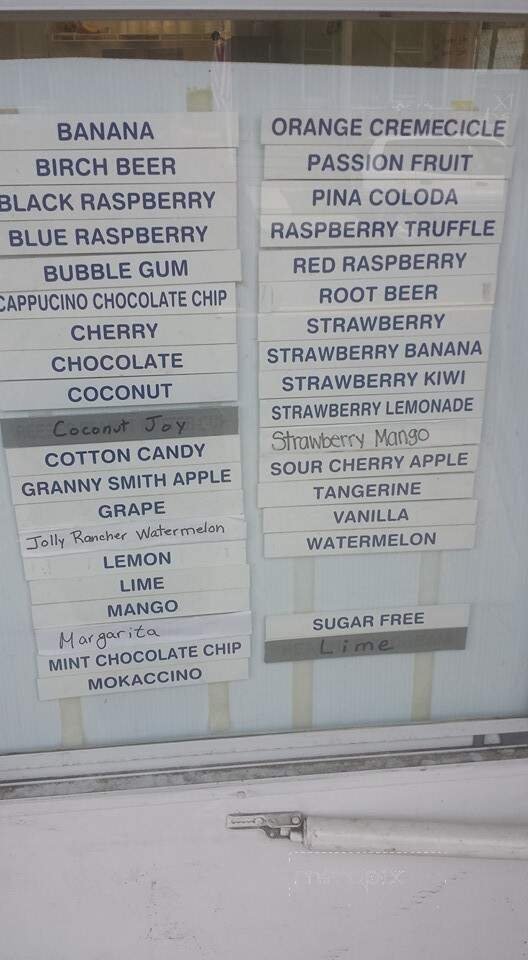 BANANA
BIRCH BEER
BLACK RASPBERRY
BLUE RASPBERRY
BUBBLE GUM
CAPPUCINO CHOCOLATE CHIP
CHERRY
CHOCOLATE
COCONUT
Coconut Joy
COTTON CANDY
GRANNY SMITH APPLE
GRAPE
Jolly Rancher Watermelon
LEMON
LIME
MANGO
Margarita
MINT CHOCOLATE CHIP
MOKACCINO
ORANGE CREMECICLE
PASSION FRUIT
PINA COLODA
RASPBERRY TRUFFLE
RED RASPBERRY
ROOT BEER
STRAWBERRY
STRAWBERRY BANANA
STRAWBERRY KIWI
STRAWBERRY LEMONADE
Strawberry Mango
SOUR CHERRY APPLE
TANGERINE
VANILLA
WATERMELON
SUGAR FREE
Lime